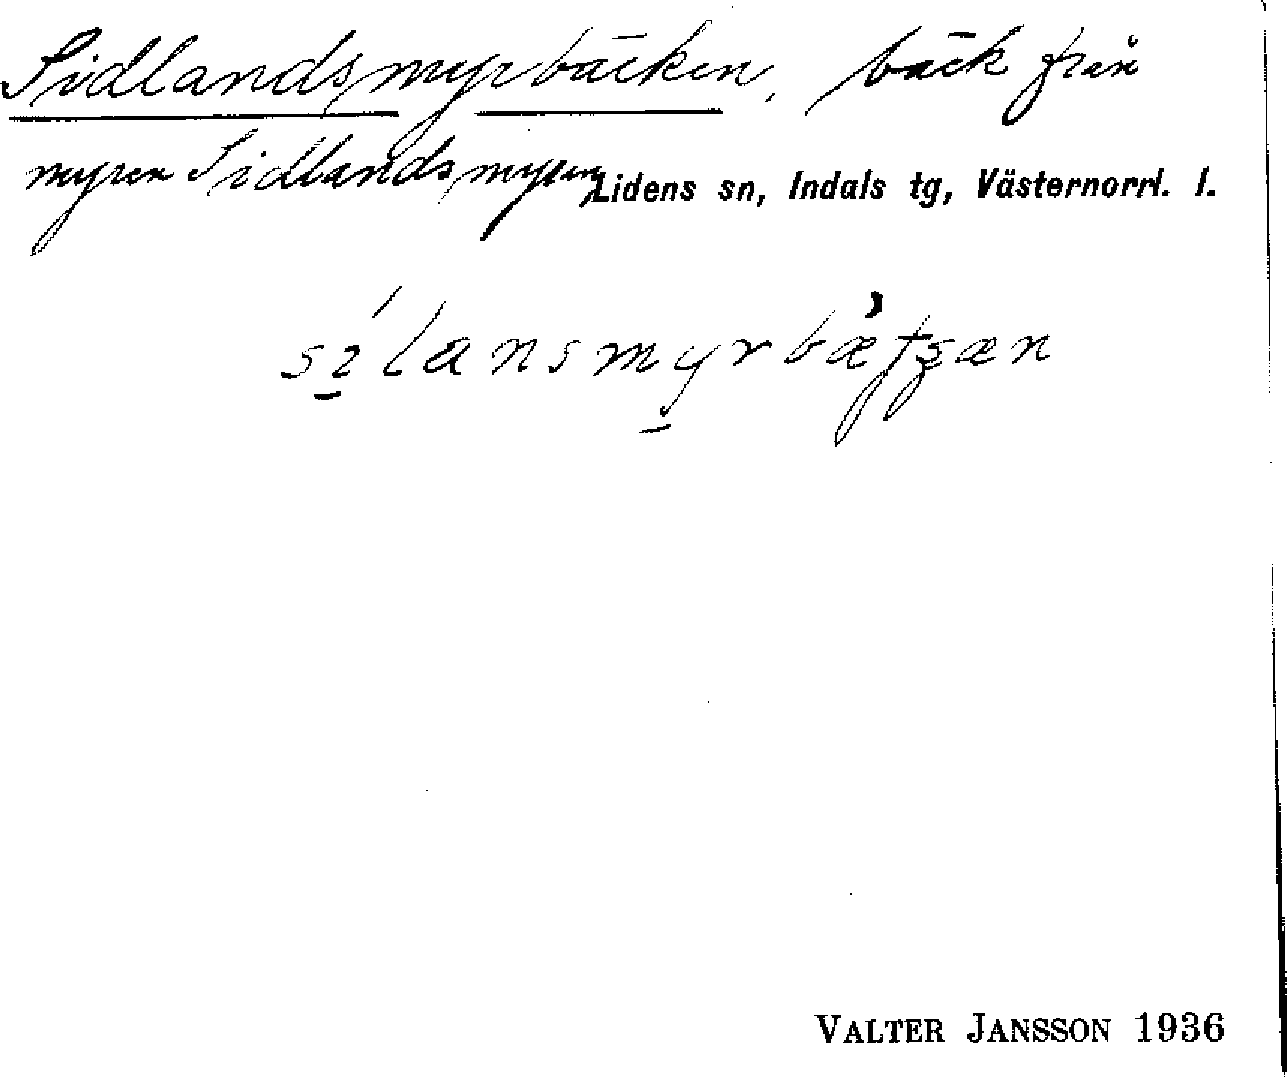 Sidlandsmyrbäcken, bäck från
myren Sidlandsmyren
Lidens sn, Indals tg, Västernorrl. l.
VALTER JANSSON 1936